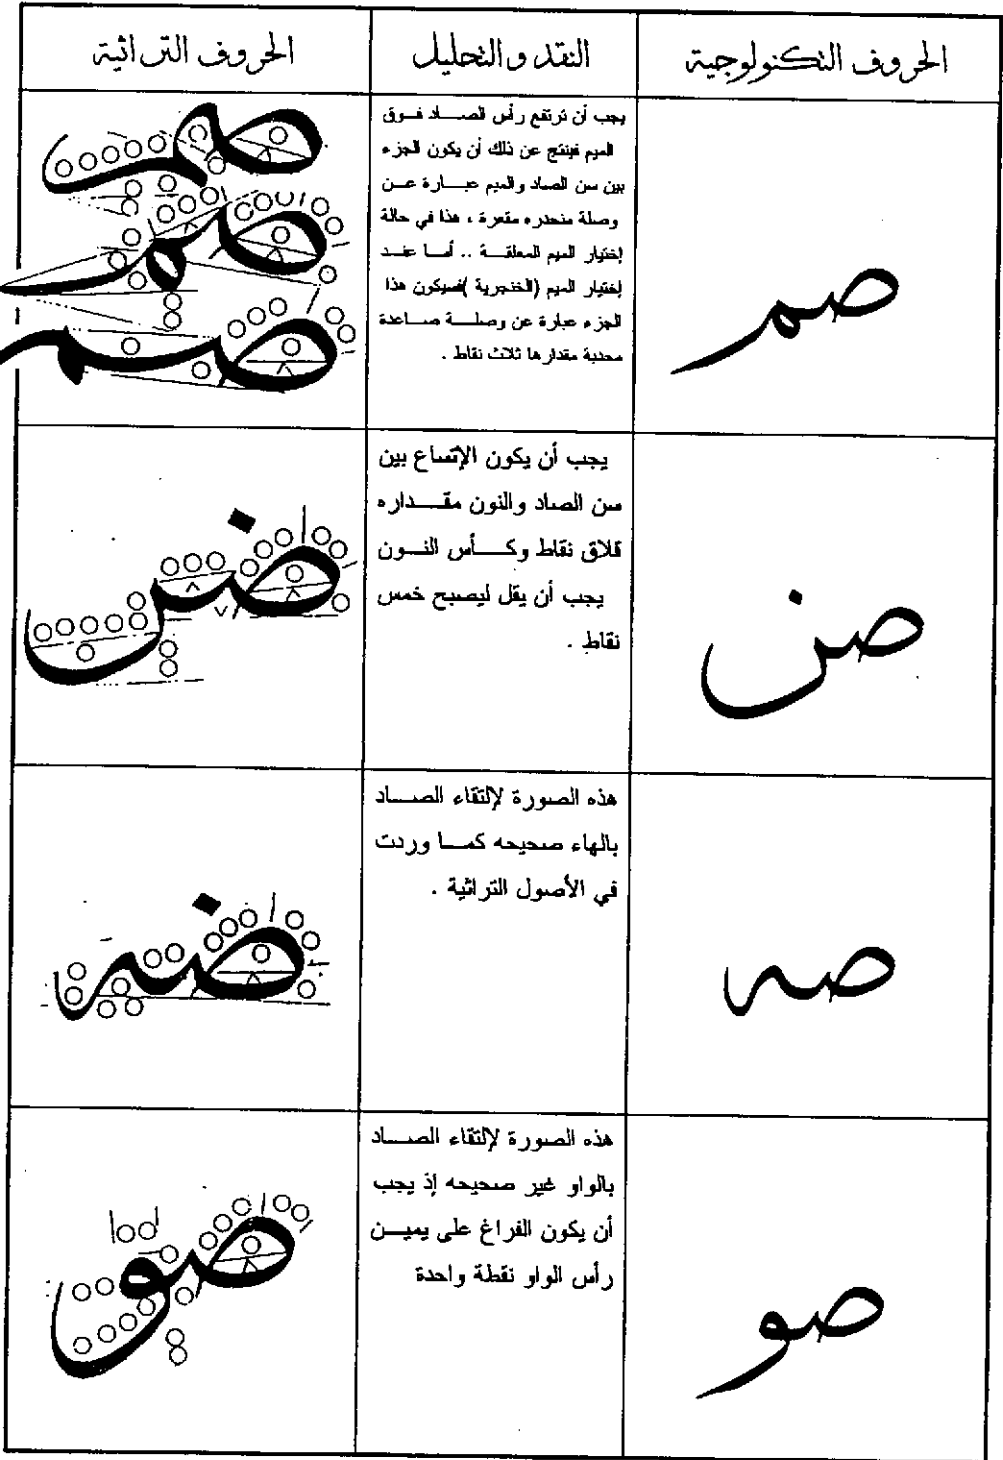 الحروف التكنولوجية
النقد والتحليل
الحروف التراثية
صمر
يجب أن ترتفع رأس الصاد فوق
الميم فينتج عن ذلك أن يكون الجزء
بين سن الصاد والميم عبارة عن
وصلة منحدره مقعرة ، هذا في حالة
إختيار الميم المعلقة .. أما عند
إختيار الميم (الخنجرية )فسيكون هذا
الجزء عبارة عن وصلة صاعدة
محدبة مقدارها ثلاث نقاط .
ضن
يجب أن يكون الإتساع بين
سن الصاد والنون مقداره
ثلاق نقاط وكأس النون
يجب أن يقل ليصبح خمس
نقاط .
ضن
صه
هذه الصورة لإلتقاء الصاد
بالهاء صحيحه كما وردت
في الأصول التراثية .
ضه
صو
هذه الصورة لإلتقاء الصاد
بالواو غير صحيحه إذ يجب
أن يكون الفراغ على يمين
رأس الواو نقطة واحدة
صو